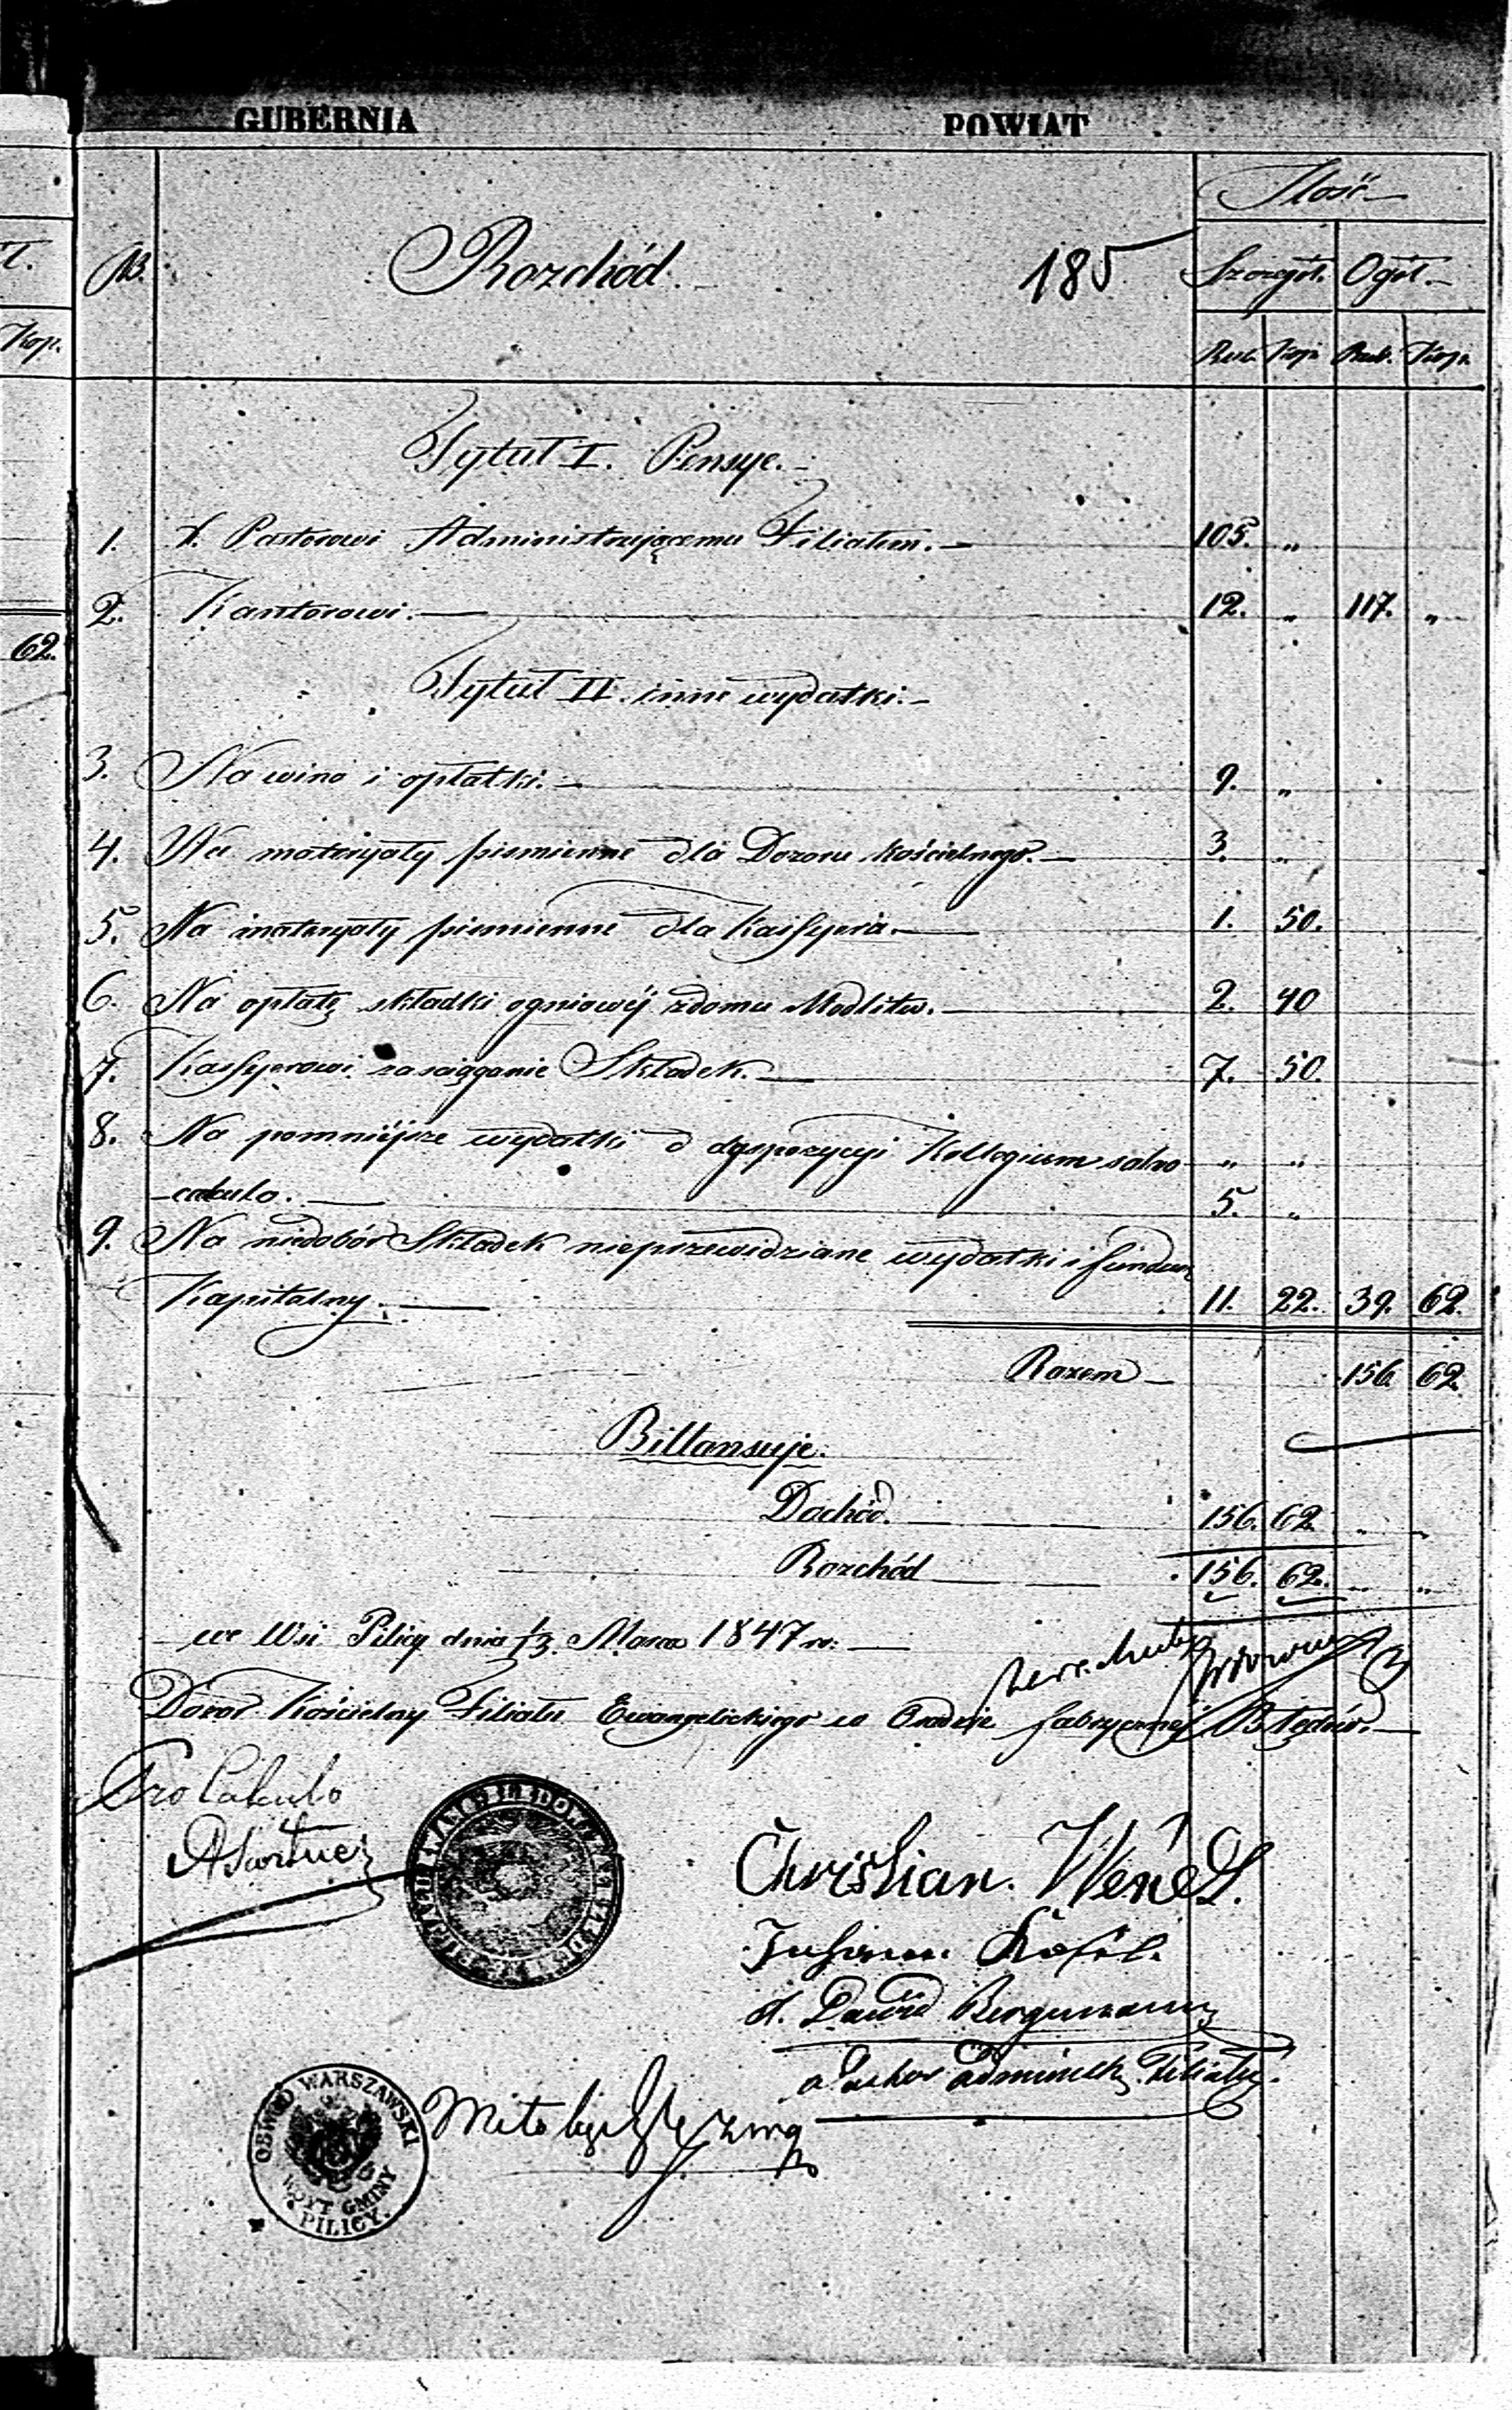 GUBERNIA POWIAT
Ilość
T. № Rozchód. 185 Szczegół. Ogół.
Kop. Rub. Kop. Rub. Kop.
Tytuł I. Pensye.
1. X. Pastorowi Administrującemu Filiałem. 105. „
2. Kantorowi. 12. „ 117. „
62.
Tytuł II. inne wydatki.
3. Na wino i opłatki. 9. „
4. Na materyały piśmienne dla Dozoru kościelnego. 3. „
5. Na materyały piśmienne dla Kassyera. 1. 50.
6. Na opłatę składki ogniowéj z domu Modlitw. 2. 40
7. Kassyerowi za ściąganie Składek. 7. 50.
8. Na pomniéjsze wydatki d dyspozycyi Kollegium salvo „ „
calculo. 5. „
9. Na niedobór Składek nieprzewidziane wydatki i fundusz
Kapitalny. 11. 22. 39. 62.
Razem 156 62
Billansuje.
Dochód. 156. 62. „ „
Rozchód 156. 62. „ „
we Wsi Pilicy dnia 1/3 Marca 1847 r.
Dozor Kościelny Filiału Ewangelickiego w Osadzie fabrycznej Błędów.
Pro Calculo
Christian. Wende.
Johann
X. Dawid Bergmann
Pastor Administr. Filiału.
OBWÓD WARSZAWSKI
WOYT GMINY
PILICY.